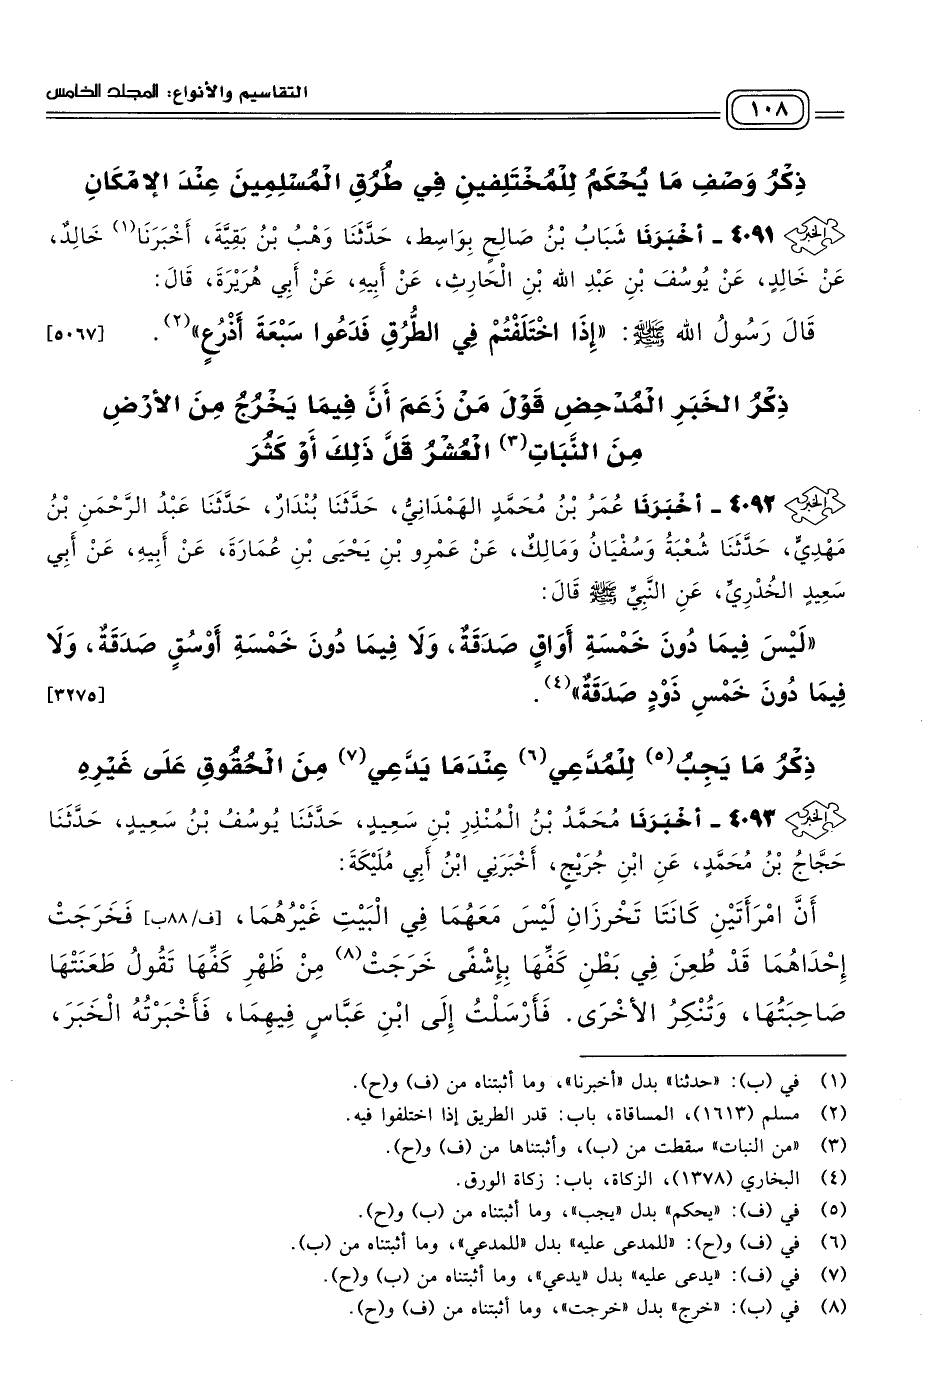 التقاسيم والأنواع: المجلد الخامس
١٠٨
ذِكْرُ وَصْفِ مَا يُحْكَمُ لِلْمُخْتَلِفينِ فِي طُرُقِ الْمُسْلِمِينَ عِنْدَ الإمْكَانِ
٤٠٩١ - أخْبَرَنَا شَبَابُ بْنُ صَالِحٍ بِوَاسِط، حَدَّثَنَا وَهْبُ بْنُ بَقِيَّةَ، أَخْبَرَنَا(١) خَالِدٌ،
عَنْ خَالِدٍ، عَنْ يُوسُفَ بْنِ عَبْدِ الله بْنِ الْحَارِثِ، عَنْ أَبِيهِ، عَنْ أَبِي هُرَيْرَةَ، قَالَ:
قَالَ رَسُولُ الله ﷺ: «إِذَا اخْتَلَفْتُمْ فِي الطُّرُقِ فَدَعُوا سَبْعَةَ أَذْرُعٍ»(٢). [٥٠٦٧]
ذِكْرُ الخَبَرِ الْمُدْحِضِ قَوْلَ مَنْ زَعَمَ أَنَّ فِيمَا يَخْرُجُ مِنَ الأرْضِ
مِنَ النَّبَاتِ(٣) الْعُشْرُ قَلَّ ذَلِكَ أَوْ كَثُرَ
٤٠٩٢ - أخْبَرَنَا عُمَرُ بْنُ مُحَمَّدٍ الهَمْدَانِيُّ، حَدَّثَنَا بُنْدَارٌ، حَدَّثَنَا عَبْدُ الرَّحْمَنِ بْنُ
مَهْدِيٍّ، حَدَّثَنَا شُعْبَةُ وَسُفْيَانُ وَمَالِكٌ، عَنْ عَمْرِو بْنِ يَحْيَى بْنِ عُمَارَةَ، عَنْ أَبِيهِ، عَنْ أَبِي
سَعِيدٍ الخُدْرِيِّ، عَنِ النَّبِيِّ ﷺ قَالَ:
«لَيْسَ فِيمَا دُونَ خَمْسَةِ أَوَاقٍ صَدَقَةٌ، وَلَا فِيمَا دُونَ خَمْسَةِ أَوْسُقٍ صَدَقَةٌ، وَلَا
فِيمَا دُونَ خَمْسِ ذَوْدٍ صَدَقَةٌ»(٤). [٣٢٧٥]
ذِكْرُ مَا يَجِبُ(٥) لِلْمُدَّعِي(٦) عِنْدَمَا يَدَّعِي(٧) مِنَ الْحُقُوقِ عَلَى غَيْرِهِ
٤٠٩٣ - أخْبَرَنَا مُحَمَّدُ بْنُ الْمُنْذِرِ بْنِ سَعِيدٍ، حَدَّثَنَا يُوسُفُ بْنُ سَعِيدٍ، حَدَّثَنَا
حَجَّاجُ بْنُ مُحَمَّدٍ، عَنِ ابْنِ جُرَيْجٍ، أَخْبَرَنِي ابْنُ أَبِي مُلَيْكَةَ:
أَنَّ امْرَأَتَيْنِ كَانَتَا تَخْرِزَانِ لَيْسَ مَعَهُمَا فِي الْبَيْتِ غَيْرُهُمَا، [ف/٨٨ب] فَخَرَجَتْ
إِحْدَاهُمَا قَدْ طُعِنَ فِي بَطْنِ كَفِّهَا بِإِشْفًى خَرَجَتْ(٨) مِنْ ظَهْرِ كَفِّهَا تَقُولُ طَعَنَتْهَا
صَاحِبَتُهَا، وَتُنْكِرُ الأخْرَى. فَأَرْسَلْتُ إِلَى ابْنِ عَبَّاسٍ فِيهِمَا، فَأَخْبَرْتُهُ الْخَبَرَ،
(١) في (ب): «حدثنا» بدل «أخبرنا»، وما أثبتناه من (ف) و(ح).
(٢) مسلم (١٦١٣)، المساقاة، باب: قدر الطريق إذا اختلفوا فيه.
(٣) «من النبات» سقطت من (ب)، وأثبتناها من (ف) و(ح).
(٤) البخاري (١٣٧٨)، الزكاة، باب: زكاة الورق.
(٥) في (ف): «يحكم» بدل «يجب»، وما أثبتناه من (ب) و(ح).
(٦) في (ف) و(ح): «للمدعى عليه» بدل «للمدعي»، وما أثبتناه من (ب).
(٧) في (ف): «يدعى عليه» بدل «يدعي»، وما أثبتناه من (ب) و(ح).
(٨) في (ب): «خرج» بدل «خرجت»، وما أثبتناه من (ف) و(ح).